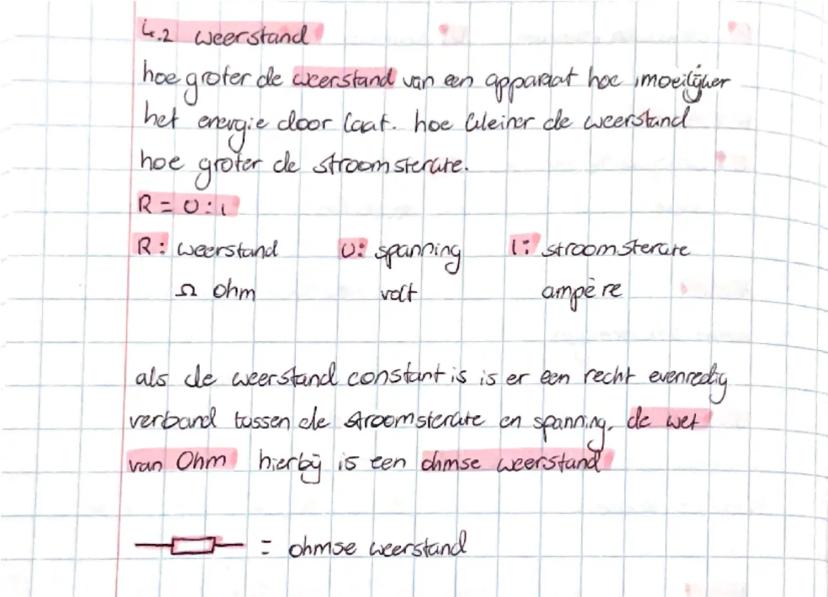 4.2 weerstand
hoe groter de weerstand van een apparaat hoe moeilijker
het energie door laat. hoe kleiner de weerstand
hoe groter de stroomsterkte.
R = U : I
R: weerstand U: spanning I: stroomsterkte
Ω ohm volt ampère
als de weerstand constant is is er een recht evenredig
verband tussen de stroomsterkte en spanning. de wet
van Ohm hierbij is een ohmse weerstand
= ohmse weerstand